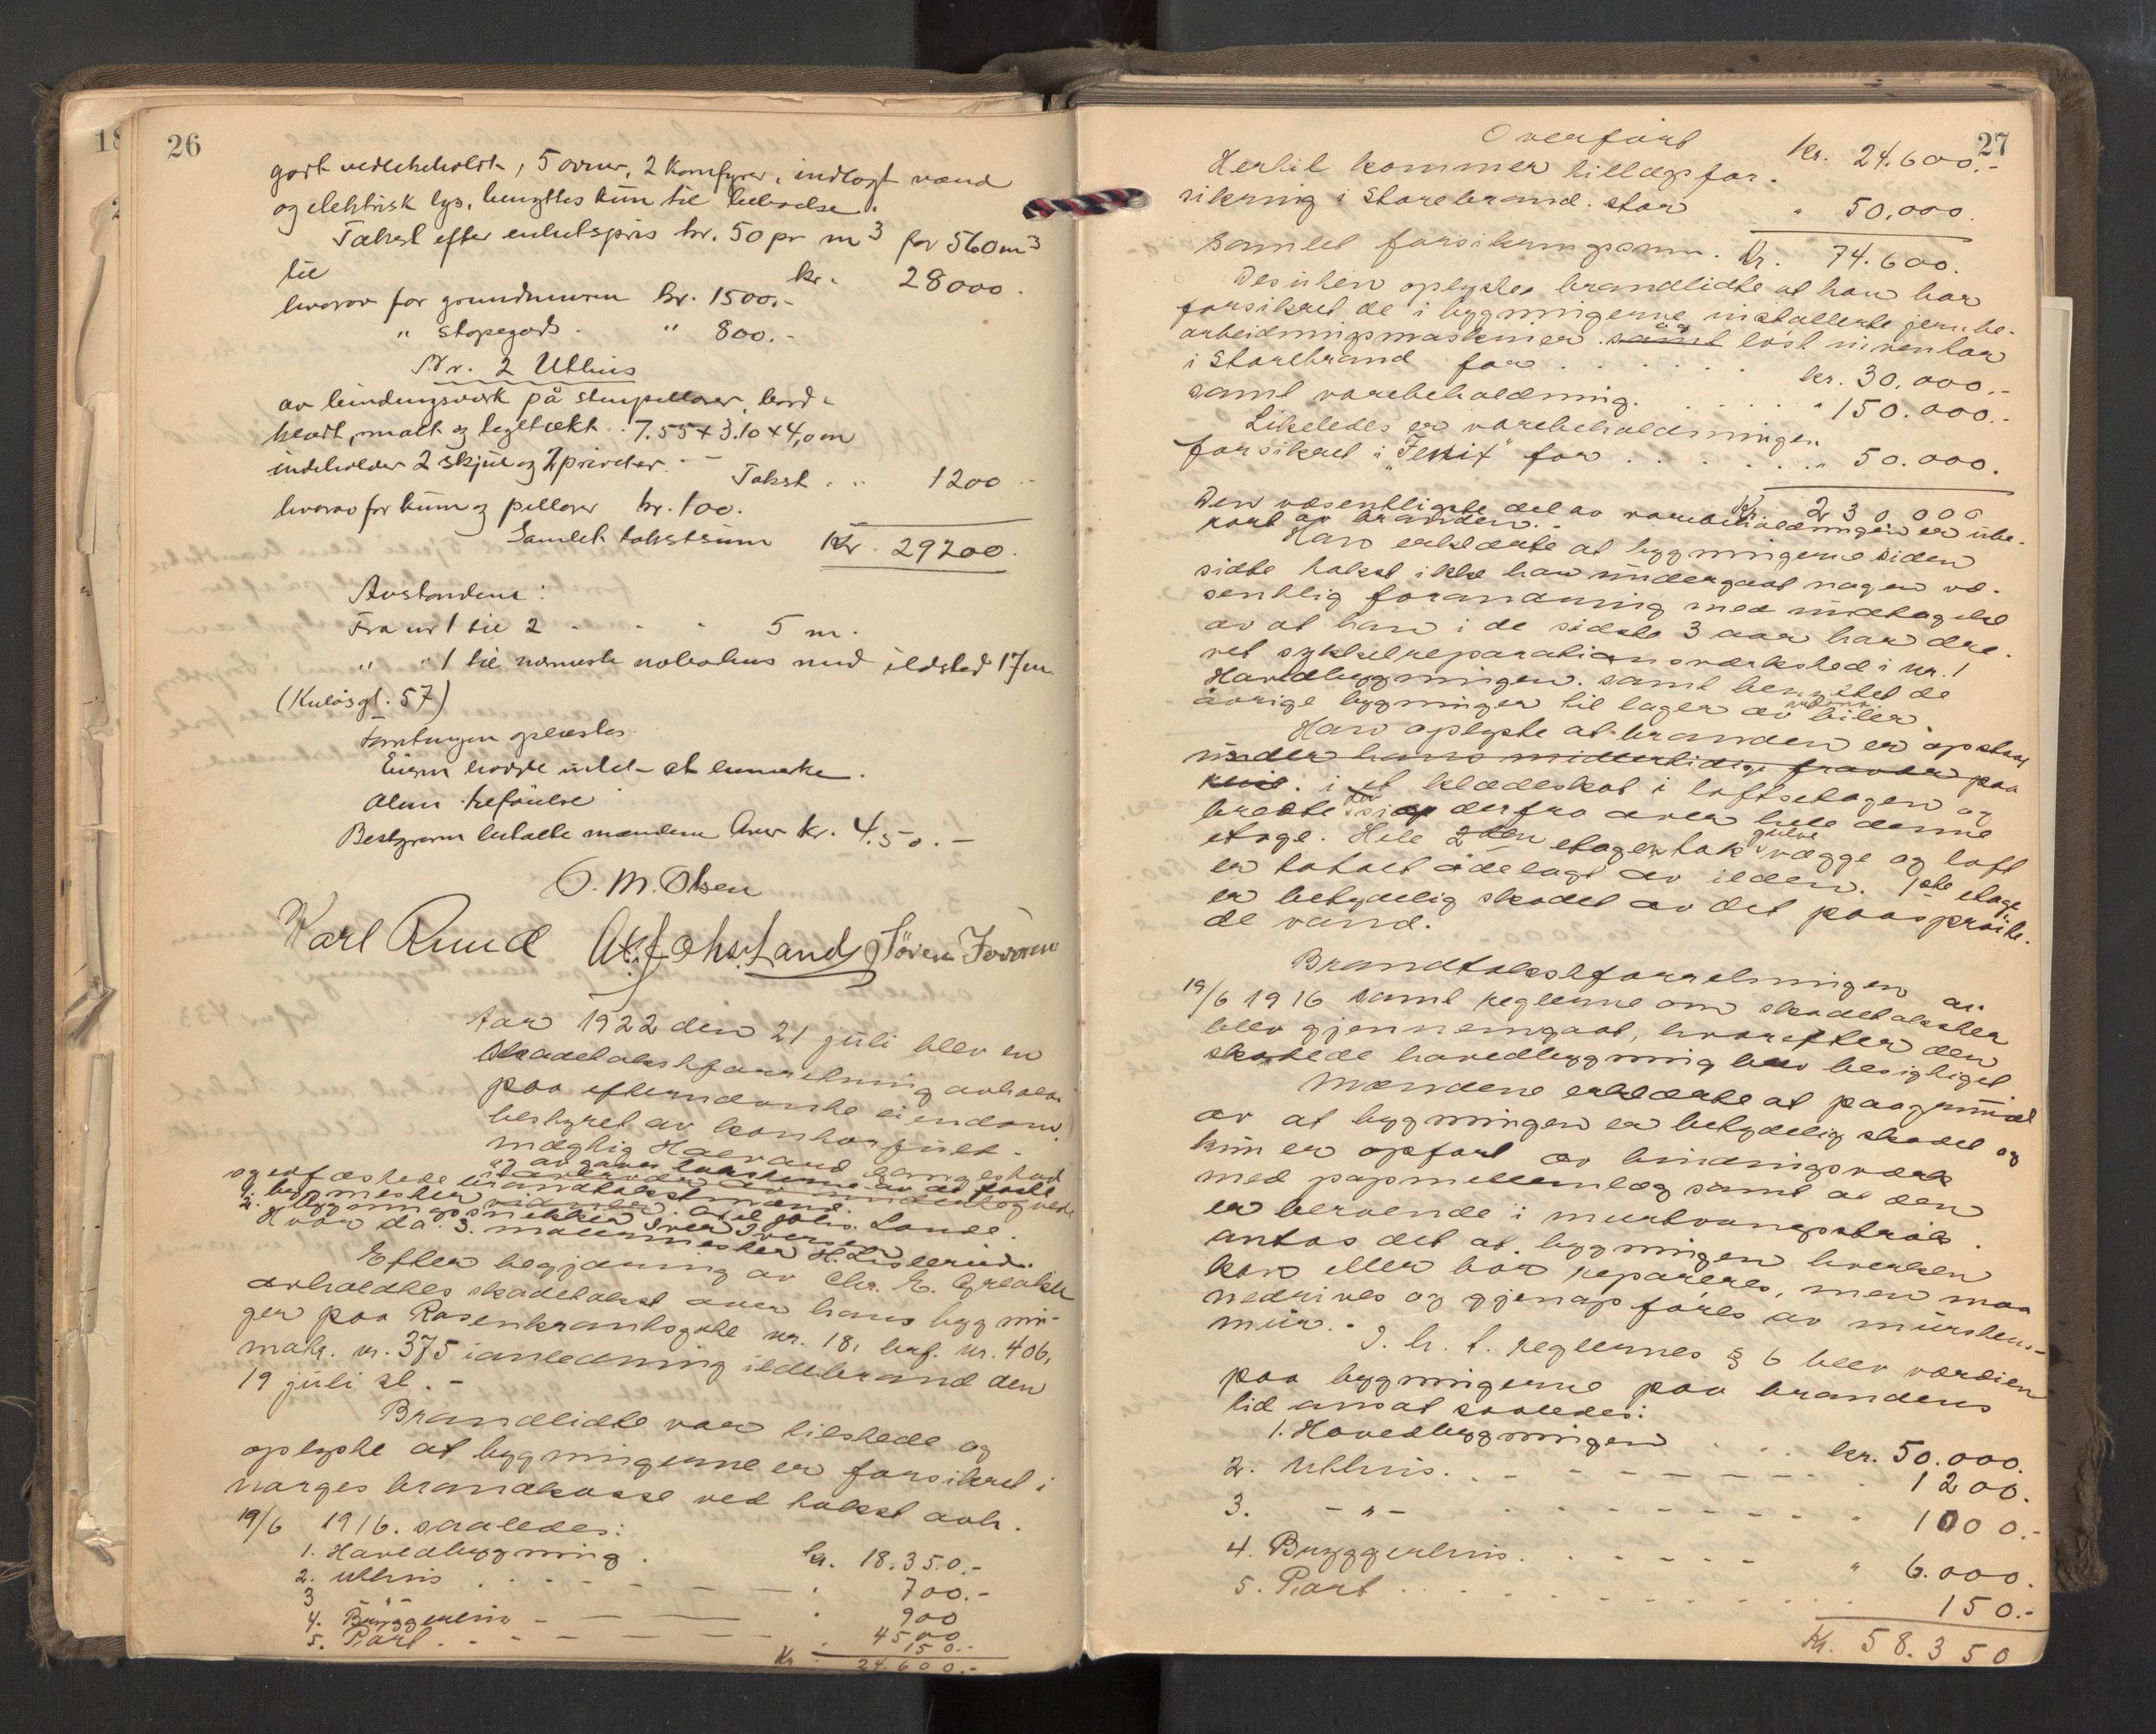 26
godt vedlikeholdt, 5 ovner, 2 komfyrer, indlagt vand
og elektrisk lys, benyttes kun til beboelse.
Takst efter enhetspris kr. 50 pr m³ for 560 m³
til kr. 28000.
hvorav for grundmuren kr. 1500.-
" støpegods. " 800.-
Nr. 2 Uthus
av bindingsverk på stenpillarer, bord-
klædt, malt og tegltækt. 7.55 x 3.10 x 4,0 m
indeholder 2 skjul og 2 priveter. - Takst . .. 1200 -
hvorav for kum og pillarer kr. 100.
Samlet takstsum Kr. 29200.
Avstandene:
Fra nr 1 til 2 - - - 5 m.
" " 1 til nærmeste nabohus med ildsted 17 m
(Kuløsgt. 57)
Forretningen oplæstes.
Eieren hadde intet at bemerke.
Bestyreren betalte mændene hver kr. 4.50.-
O. M. Olsen
Karl Ruud Ax. Johs. Lande Søren Iversen
Aar 1922 den 21 juli blev en
skadetakstforretning avholdt
paa efternævnte eiendom,
bestyret av kontorfuld-
mægtig Haavand
1. byggmester Axel Johs. Lande.
2. bygningssnekker Iver Iversen
3. malermester H. Lislerud.
Efter begjæring av Chr. E. Grønker
avholdtes skadetakst over hans bygnin-
ger paa Rosenkrantsgate nr. 18, brf. nr. 406,
matr. nr. 375 i anledning ildebrand den
19 juli sl. -
Brandlidte var tilstede og
oplyste at bygningerne er forsikret i
norges brandkasse ved takst avh.
19/6 1916. saaledes:
1. Hovedbygning . kr. 18.350.-
2. Uthus . - - - - - " 700.-
3 - " - 900
4. Bryggerhus - - - " 4500
5. Port . - - - - " 150.-
Kr. 24.600.-
27
Overført kr. 24.600.-
Hertil kommer tillægsfor-
sikring i Storebrand. stor " 50.000.
Samlet forsikringssum. Kr. 74.600.
Desuten oplyste brandlidte at han har
forsikret de i bygningerne installerte jernbe-
arbeidningsmaskiner samt og løst inventar
i Storebrand for . . . . . . kr. 30.000.-
samt varebeholdning. . . . . . " 150.000.-
Likeledes er varebeholdningen
forsikret i "Fenix" for . . . . . . " 50.000.
Kr. 230 000
Den væsentligste del av varebeholdningen er ube-
rørt av branden.-
Han erklærte at bygningerne siden
sidste takst ikke har undergaat nogen væ-
sentlig forandring med undtagelse
av at han i de sidste 3 aar har dre-
vet sykkelreparationsverksted i nr. 1
Hovedbygningen. samt benyttet de
øvrige bygninger til lager av biler.
Han oplyste at branden er opstaat
under hans midlertidige fravær paa
i et klædeskot i loftsetagen og
bredte sig derfra over hele denne
etage. Hele 2den etagen tak gulve vægge og loft
er totalt ødelagt av ilden. 1ste etage
er betydelig skadet av det paasprøite-
de vand.
Brandtakstforretningen av
19/6 1916 samt reglerne om skadetakster
blev gjennemgaat, hvorefter den
skadede hovedbygning blev besigtiget
Mændene erklærte at paa grund
av at bygningen er betydelig skadet og
kun er opført av bindingsverk
med papmellemlæg samt at den
er beroende i murtvangsstrøk.
antas det at bygningen hverken
kan eller bør repareres, men maa
nedrives og gjenopføres av mursten-
mur.-
I h. t. reglernes § 6 blev værdien
paa bygningerne paa brandens
tid ansat saaledes:
1. Hovedbygningen . . . kr. 50.000.
2. Uthus. - - - - - - - " 1200.
3. - " - - - - - - - - " 1000.-
4. Bryggerhus. . . - - - " 6.000.
5. Port . . - - - - - - . . 150.-
Kr. 58.350